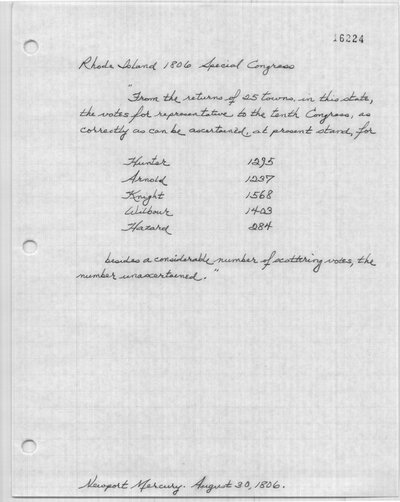 16224
Rhode Island 1806 Special Congress
"From the returns of 25 towns, in this state,
the votes for representative to the tenth Congress, as
correctly as can be ascertained, at present stand, for
Hunter 1295
Arnold 1237
Knight 1568
Wilbour 1403
Hazard 284
besides a considerable number of scattering votes, the
number unascertained."
Newport Mercury. August 30, 1806.